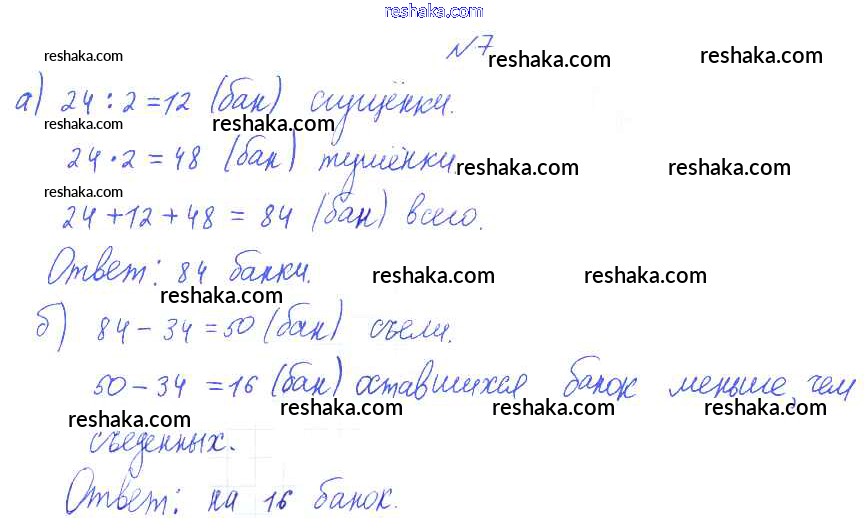 reshaka.com
№7
reshaka.com reshaka.com reshaka.com
а) 24 : 2 = 12 (бан) сгущёнки.
reshaka.com reshaka.com
24 · 2 = 48 (бан) тушёнки.
reshaka.com reshaka.com
reshaka.com
24 + 12 + 48 = 84 (бан) всего.
Ответ: 84 банки.
reshaka.com reshaka.com reshaka.com
б) 84 - 34 = 50 (бан) съели.
50 - 34 = 16 (бан) оставшихся банок меньше, чем
reshaka.com reshaka.com reshaka.com reshaka.com
съеденных.
Ответ: на 16 банок.